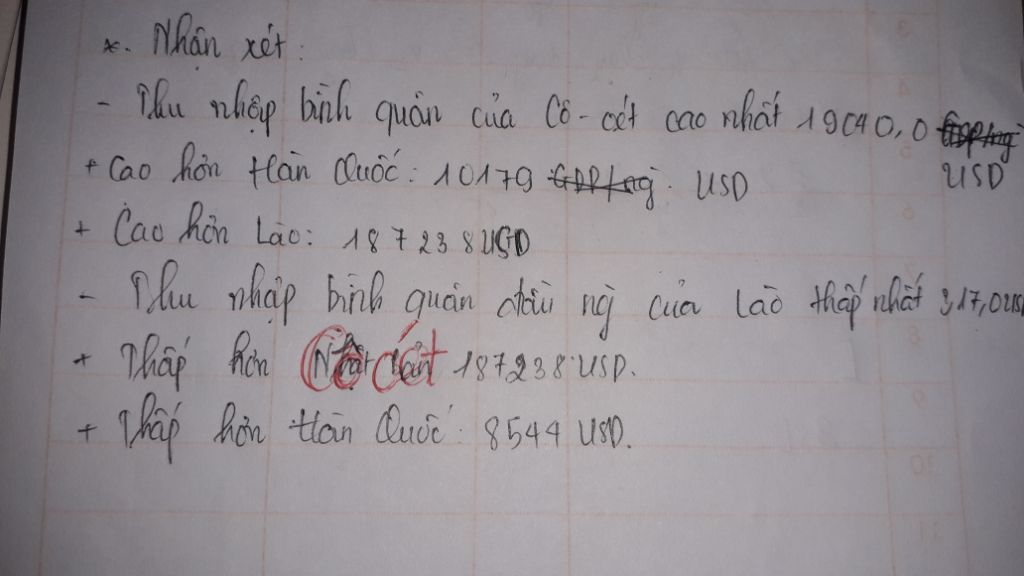 *. Nhận xét:
- Thu nhập bình quân của Cô-oét cao nhất 19040,0 USD
+ Cao hơn Hàn Quốc: 10179 USD
+ Cao hơn Lào: 187238 USD
- Thu nhập bình quân đầu ng của Lào thấp nhất 317,0 USD
+ Thấp hơn Cô oét 187238 USD.
+ Thấp hơn Hàn Quốc: 8544 USD.